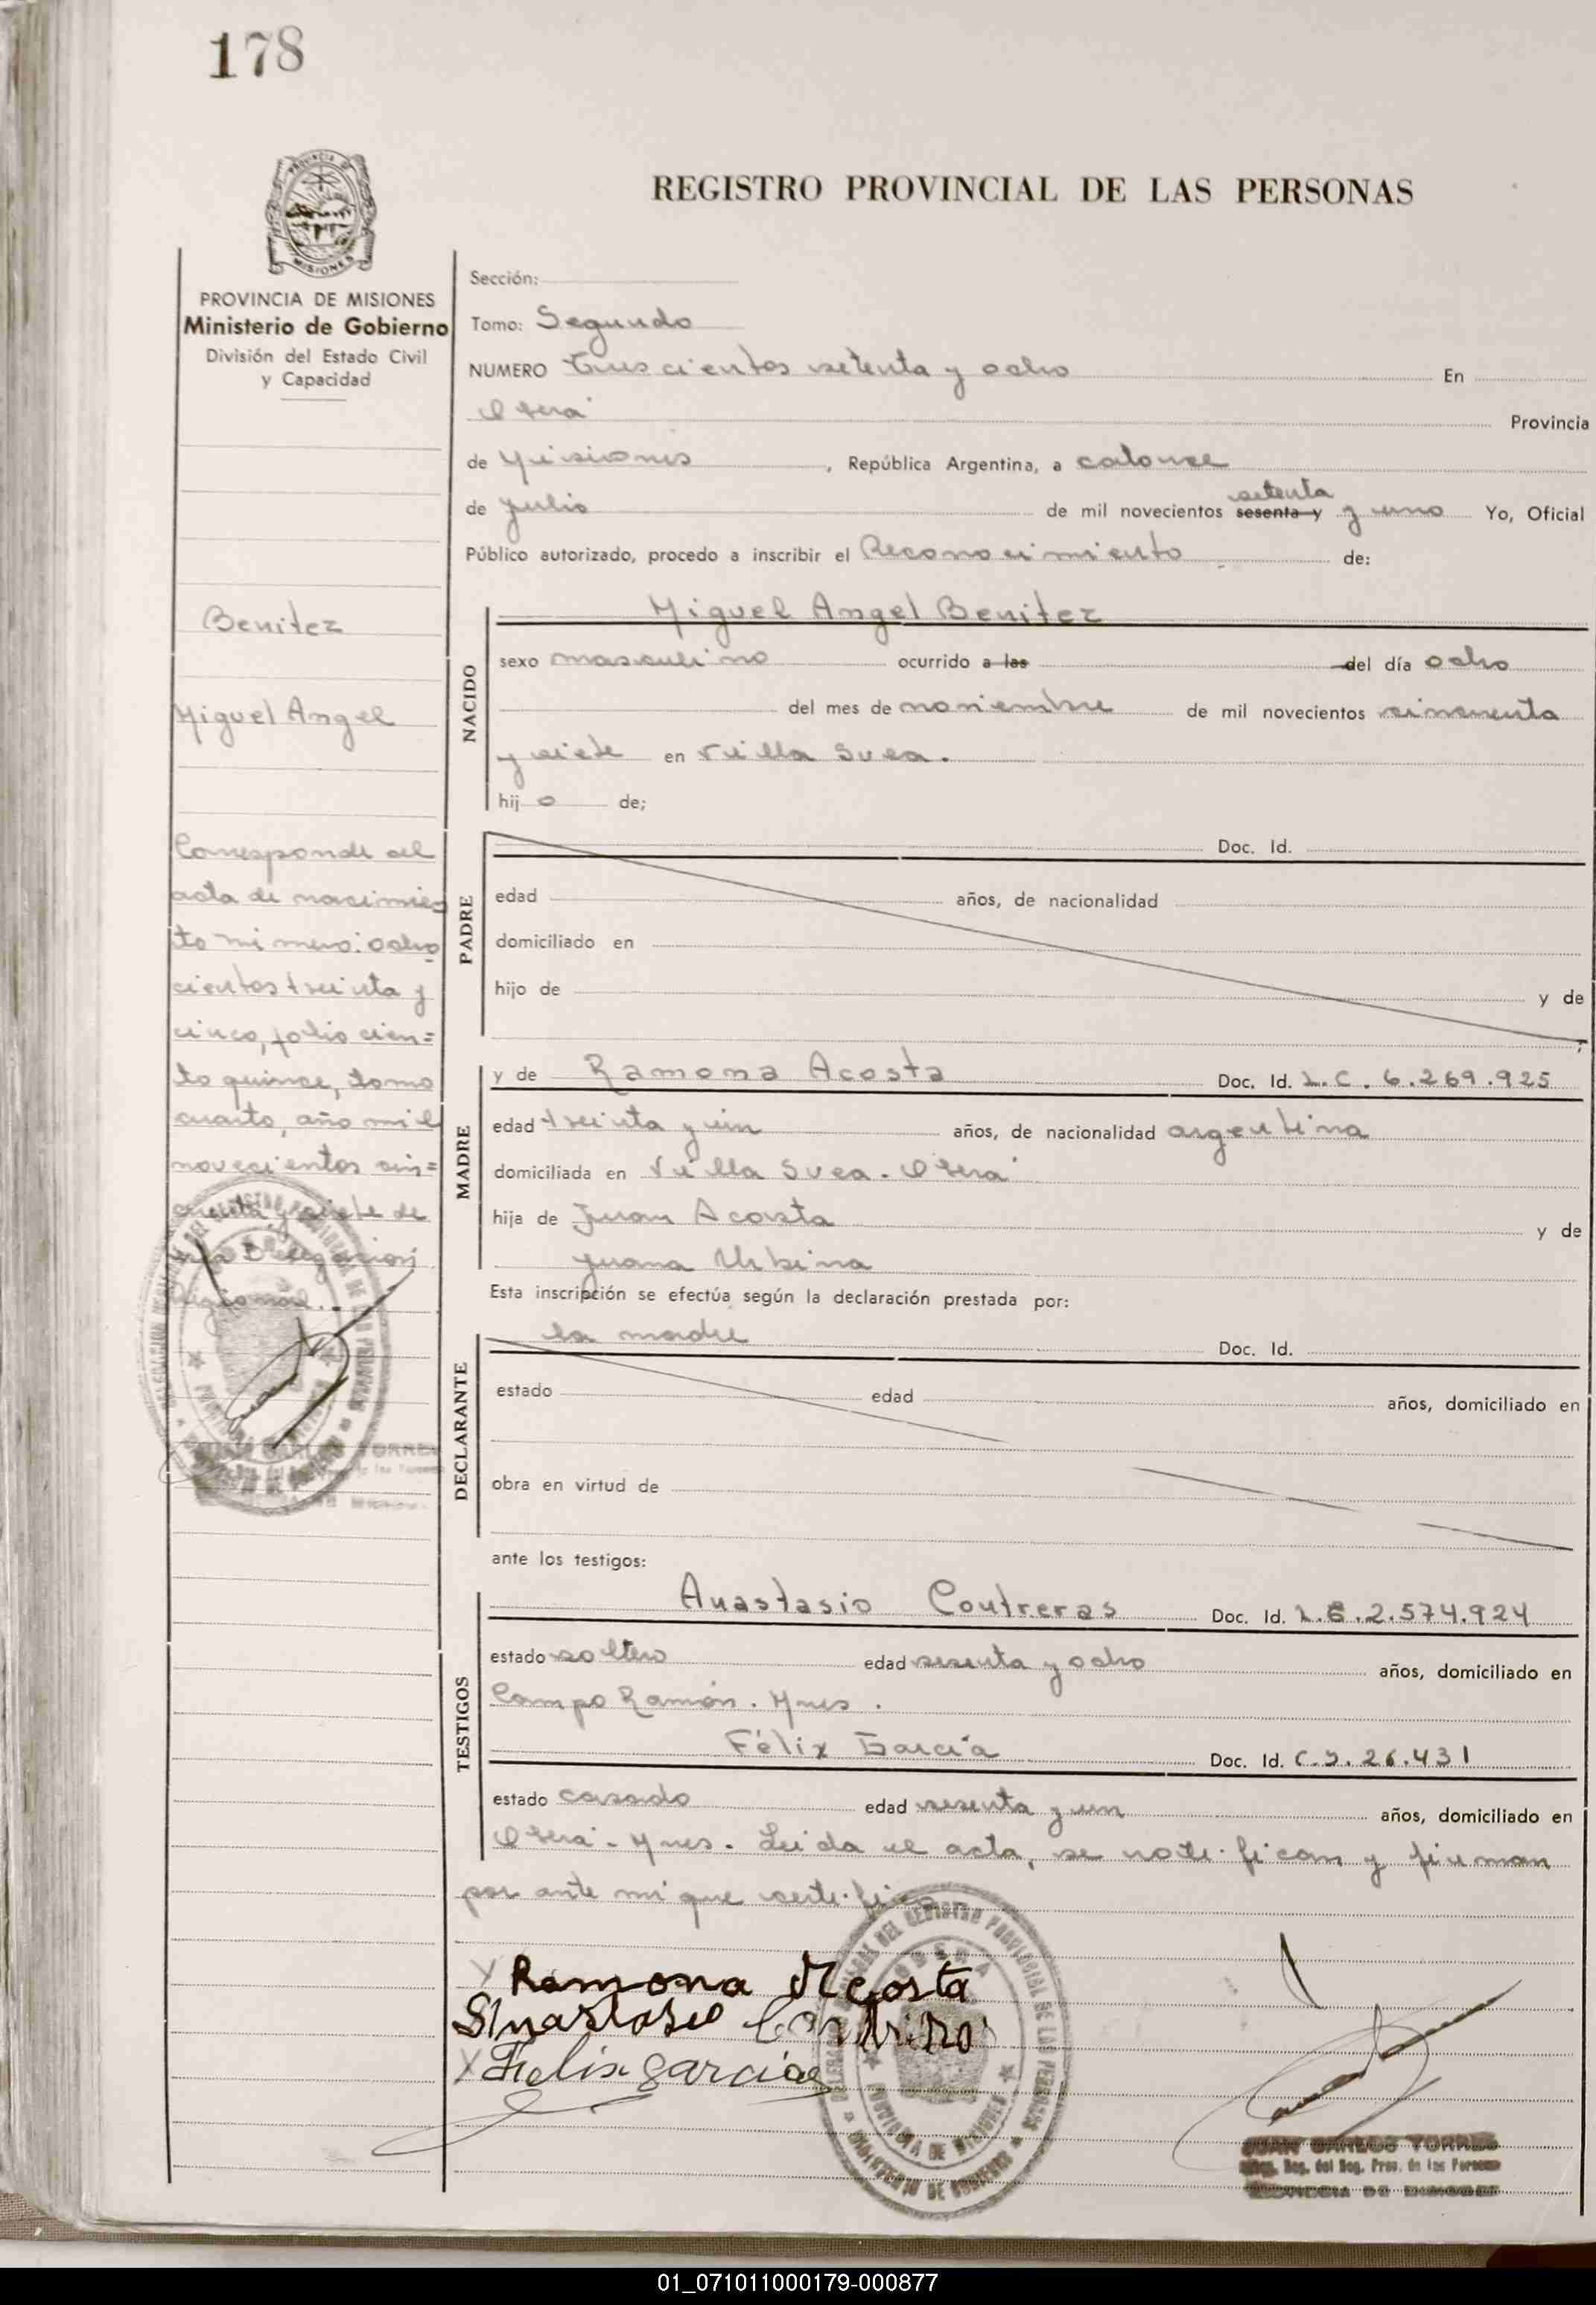 178
REGISTRO PROVINCIAL DE LAS PERSONAS
PROVINCIA DE MISIONES
Ministerio de Gobierno
División del Estado Civil
y Capacidad
Sección:
Tomo: Segundo
NUMERO Trescientos setenta y ocho En
Oberá Provincia
de Misiones, República Argentina, a catorce
setenta
de julio de mil novecientos sesenta y y uno Yo, Oficial
Público autorizado, procedo a inscribir el Reconocimiento de:
Benitez
Miguel Angel
NACIDO
Miguel Angel Benitez
sexo masculino ocurrido a las del día ocho
del mes de noviembre de mil novecientos cincuenta
y siete en Villa Svea.
hijo de;
Corresponde al
acta de nacimien
to número: ocho
cientos treinta y
cinco, folio cien=
to quince, tomo
cuarto, año mil
novecientos cin=
cuenta y siete de
Delegación
Regional.
PADRE
Doc. Id.
edad años, de nacionalidad
domiciliado en
hijo de y de
MADRE
y de Ramona Acosta Doc. Id. L.C. 6.269.925
edad treinta y un años, de nacionalidad argentina
domiciliada en Villa Svea - Oberá
hija de Juan Acosta y de
Juana Urbina
Esta inscripción se efectúa según la declaración prestada por:
DECLARANTE
la madre Doc. Id.
estado edad años, domiciliado en
obra en virtud de
ante los testigos:
TESTIGOS
Anastasio Contreras Doc. Id. L.E.2.574.924
estado soltero edad sesenta y ocho años, domiciliado en
Campo Ramón. Mnes.
Félix García Doc. Id. C.I. 26.431
estado casado edad sesenta y un años, domiciliado en
Oberá - Mnes. Leída el acta, se notifican y firman
por ante mi que certifico
Ramona Acosta
Felix Garcia
JUAN CARLOS TORRES
Reg. Prov. de las Personas
PROVINCIA DE MISIONES
01_071011000179-000877